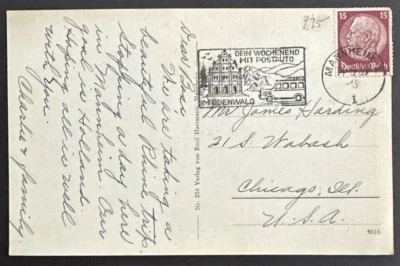 2.25
15 15
Deutsches Reich
DEIN WOCHENEND
MIT POSTAUTO
IM ODENWALD
MANNHEIM
1
Dear Bro,
We are taking a
beautiful Rhine trip.
Stopping a day here
in Mannheim. Our
goal is Holland
Hoping all is well
with you.
Charlie & family.
Nr. 234 Verlag von Emil
Mr James Harding
21 S. Wabash
Chicago, Ill.
U.S.A.
9615